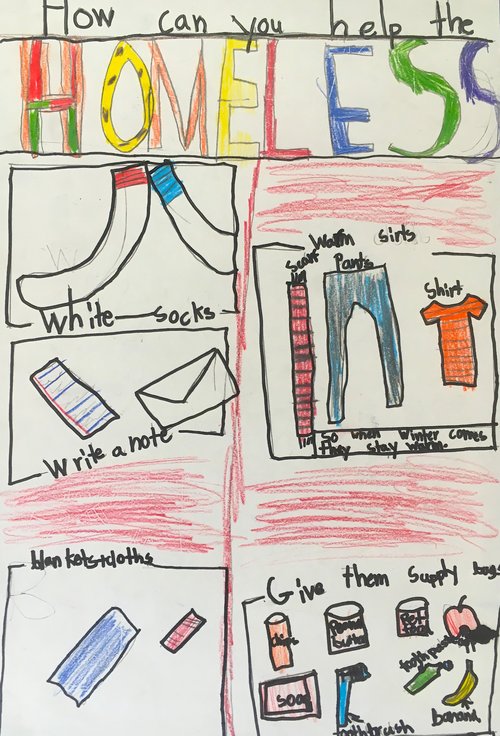 How can you help the
HOMELESS
White socks
Warm sirts
Scarf
Pants
Shirt
So when winter comes
they stay warm
Write a note
blankets+cloths
Give them supply bags
Peanut
butter
soap
toothbrush
banana